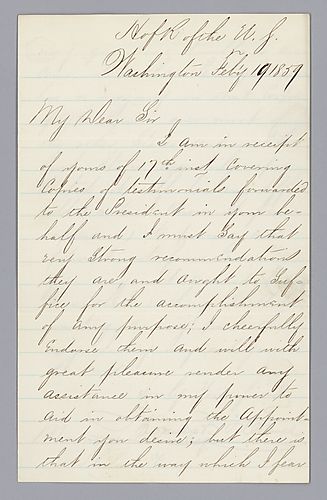 H of R of the U. S.
Washington Feb'y 19 1859
My Dear Sir
I am in receipt
of yours of 17th inst Covering
Copies of testimonials forwarded
to the President in your be-
half and I must Say that
very Strong recommendations
they are, and ought to Suf-
fice for the accomplishment
of any purpose; I cheerfully
Endorse them and will with
great pleasure render any
assistance in my power to
aid in obtaining the Appoint-
ment you desire; but there is
that in the way which I fear